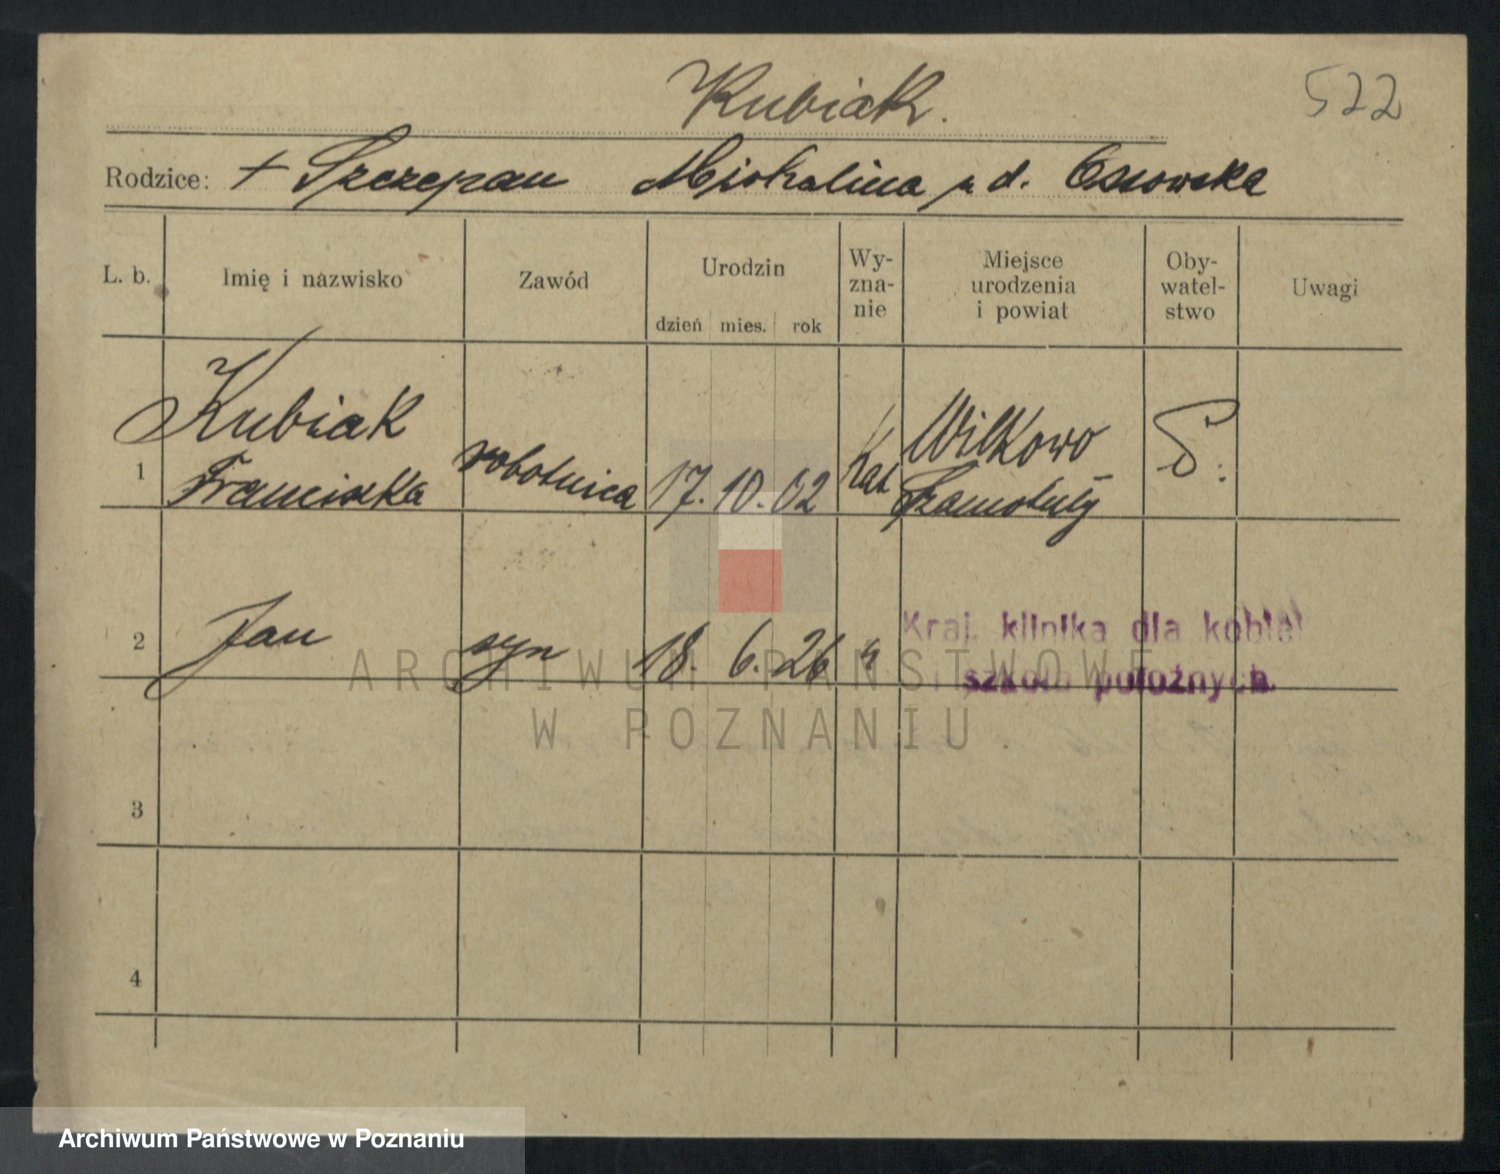 Kubiak.
522
Rodzice: + Szczepan Michalina z d. Ossowska
L. b.
Imię i nazwisko
Zawód
Urodzin
dzień mies. rok
Wy-
zna-
nie
Miejsce
urodzenia
i powiat
Oby-
watel-
stwo
Uwagi
1
Kubiak
Franciszka
robotnica
17. 10. 02
Kat
Wilkowo
Szamotuły
P.
2
Jan
syn
18. 6. 26
"
Kraj. klinika dla kobiet
i szkoła położnych.
3
4
ARCHIWUM PAŃSTWOWE
W POZNANIU
Archiwum Państwowe w Poznaniu